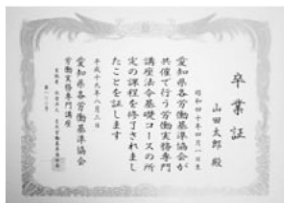 卒業証
山田太郎 殿
昭和四十年四月一日生
愛知県各労働基準協会が
共催で行う労働実務専門
講座法令基礎コースの所
定の課程を修了されまし
たことを証します
平成十九年八月三日
愛知県各労働基準協会
労働実務専門講座